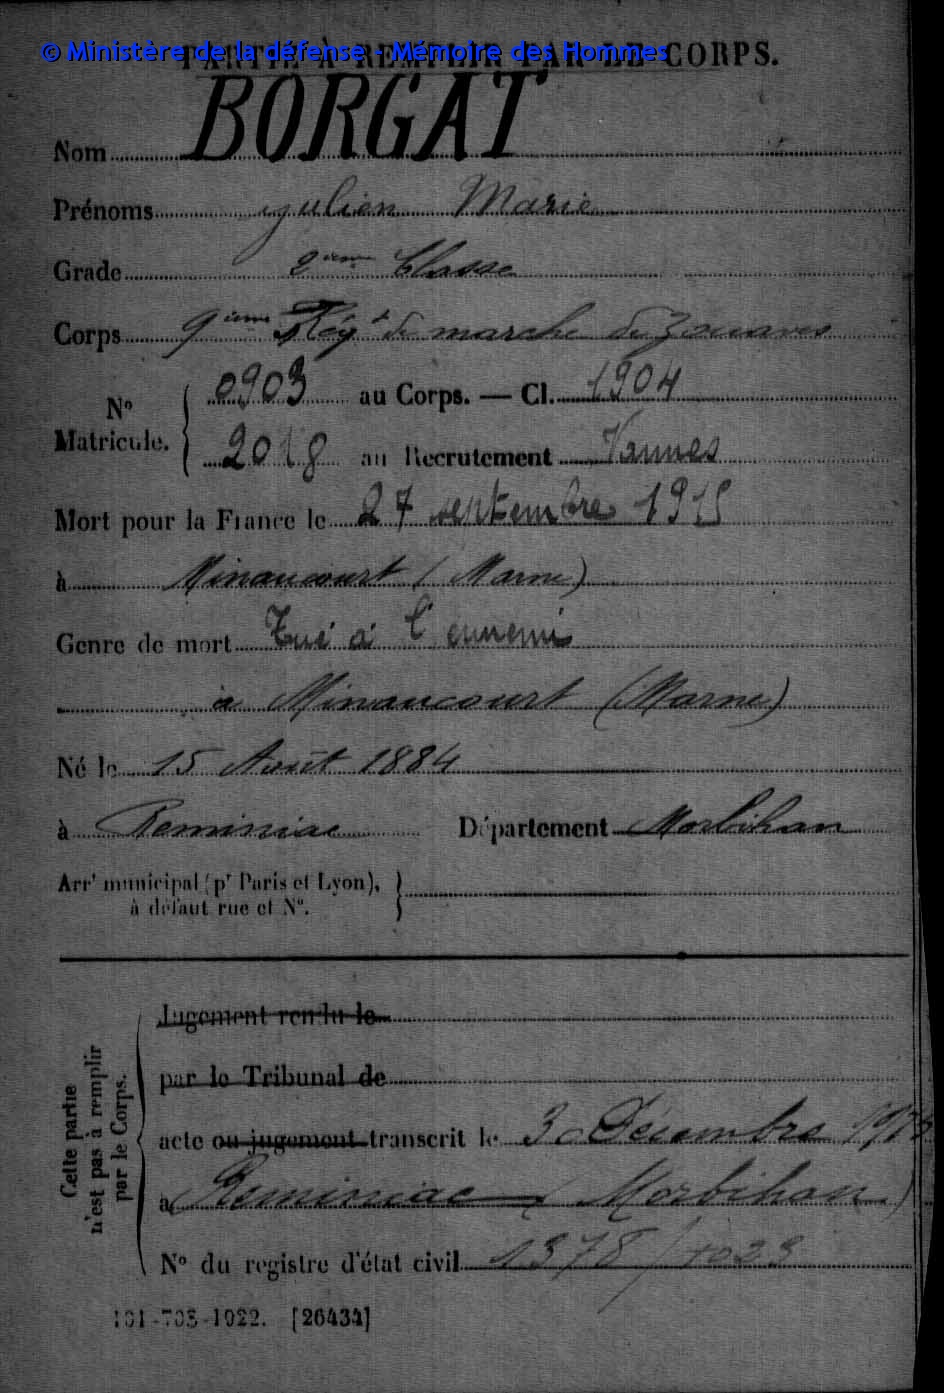 © Ministère de la défense - Mémoire des Hommes
PARTIE À REMPLIR PAR LE CORPS.
Nom BORGAT
Prénoms Julien Marie
Grade 2ième Classe
Corps 9ième Régt de marche de Zouaves
No Matricule. { 0903 au Corps. — Cl. 1904
2018 au Recrutement Vannes
Mort pour la France le 27 septembre 1915
à Minaucourt (Marne)
Genre de mort Tué à l'ennemi
à Minaucourt (Marne)
Né le 15 Août 1884
à Reminiac Département Morbihan
Arrt municipal (pr Paris et Lyon),
à défaut rue et No.
Cette partie n'est pas à remplir par le Corps.
Jugement rendu le
par le Tribunal de
acte ou jugement transcrit le 30 Décembre
à Reminiac (Morbihan)
No du registre d'état civil 1378/
101-708-1922. [26434]